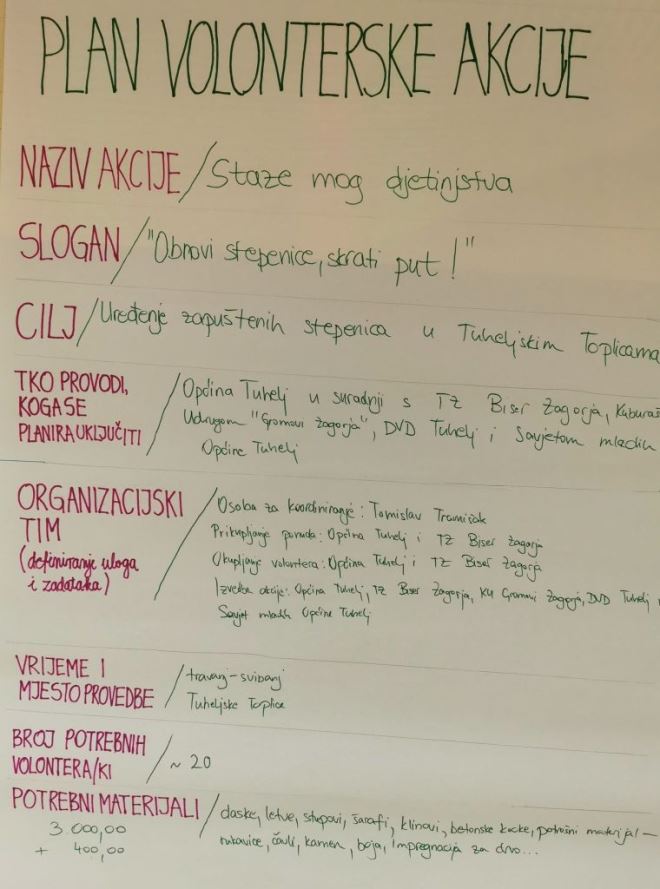 PLAN VOLONTERSKE AKCIJE
NAZIV AKCIJE / Staze mog djetinjstva
SLOGAN / "Obnovi stepenice, skrati put!"
CILJ / Uređenje zapuštenih stepenica u Tuheljskim Toplicama
TKO PROVODI,
KOGA SE
PLANIRA UKLJUČITI / Općina Tuhelj u suradnji s TZ Biser Zagorja, Kuburaš
Udrugom "Gromovi Zagorja", DVD Tuhelj i Savjetom mladih
Općine Tuhelj
ORGANIZACIJSKI
TIM
(definiranje uloga
i zadataka) / Osoba za koordiniranje: Tomislav
Prikupljanje ponuda: Općina Tuhelj i TZ Biser Zagorja
Okupljanje volontera: Općina Tuhelj i TZ Biser Zagorja
Izvedba akcije: Općina Tuhelj, TZ Biser Zagorja, KU Gromovi Zagorja, DVD Tuhelj
Savjet mladih Općine Tuhelj
VRIJEME I
MJESTO PROVEDBE / travanj-svibanj
Tuheljske Toplice
BROJ POTREBNIH
VOLONTERA/KI / ~ 20
POTREBNI MATERIJALI / daske, letve, stupovi, šarafi, klinovi, betonske kocke, potrošni materijal -
rukavice, čavli, kamen, boja, impregnacija za drvo...
3.000,00
+ 400,00